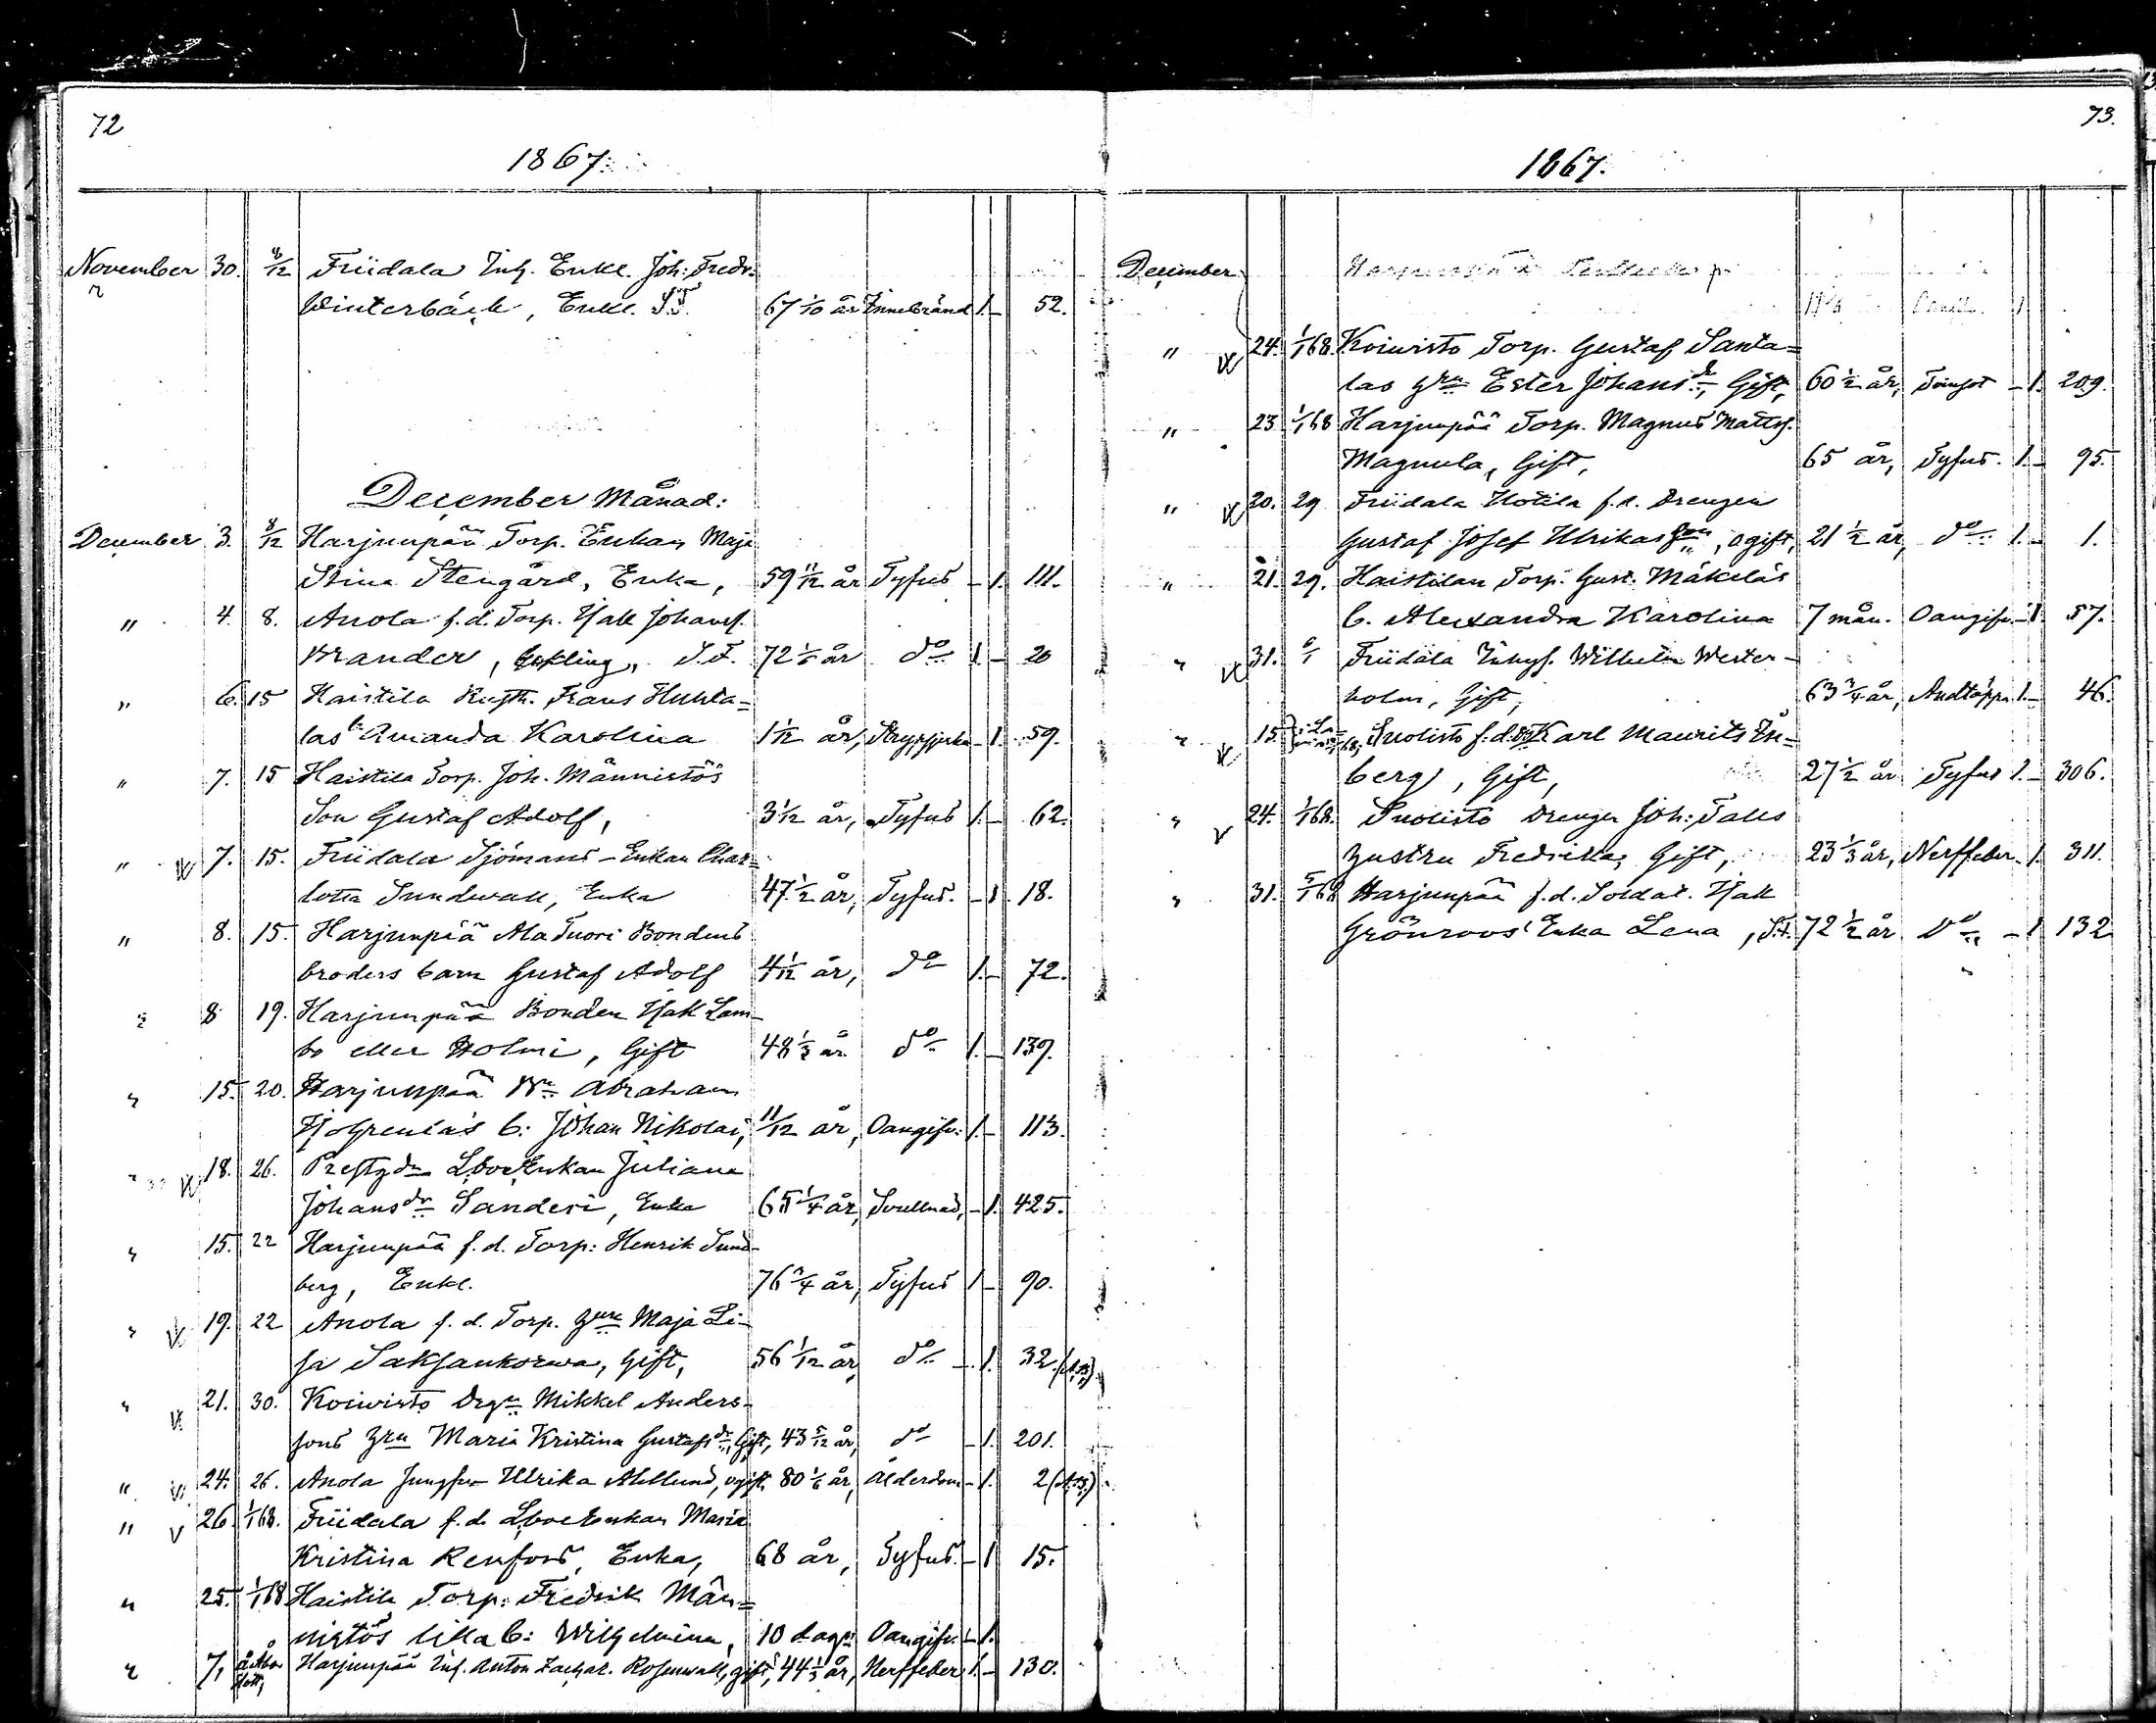 72
1867.
November 30. 8/12 Friidala Inh. Enkl. Joh: Fredr.
Winterbäck, Enkl. S.F. 67 1/10 år Innebränd 1. – 52.
December Månad:
December 3. 8/12 Harjunpää Torp. Enkan Maja
Stina Stengård, Enka, 59 11/12 år Tyfus – 1. 111.
" 4. 8. Anola f.d. Torp. Isak Johanss.
Brander, Enkling, S.F. 72 1/6 år do 1 – 20
" 6. 15 Haistila Rusth. Frans Huhta=
las b. Amanda Karolina 1 1/12 år, Strypsjuka – 1. 59.
" 7. 15 Haistila Torp. Joh. Männistös
Son Gustaf Adolf, 3 1/12 år, Tyfus 1. – 62.
" 7. 15. Friidala Sjömans-Enkan Char=
lotta Sundwall, Enka 47 1/2 år, Tyfus. – 1 18.
" 8. 15. Harjunpää Ala Tuori Bondens
broders barn Gustaf Adolf 4 1/12 år, do 1. – 72.
" 8 19. Harjunpää Bonden Isak Lam-
bo eller Holmi, Gift 48 1/3 år do 1. – 139.
" 15. 20. Harjunpää Abraham
b: Johan Nikolai, 11/12 år, Oangifv: 1. – 113.
" 18. 26. Enkan Juliana
Johansdr Sanderi, Enka 65 1/4 år, Svullnad, – 1. 425.
" 15. 22 Harjunpää f.d. Torp: Henrik Sund-
berg, Enkl. 76 3/4 år, Tyfus 1 – 90.
" 19. 22 Anola f.d. Torp. Maja Li-
sa Saksankorwa, Gift, 56 1/12 år, do – 1. 32.
" 21. 30. Koivisto Drgn Mikkel Anders-
sons Maria Kristina Gustafsdr, Gift, 43 5/12 år, do – 1. 201.
" 24. 26. Anola Jungfru Ulrika Ahllund, ogift 80 1/6 år, Ålderdom – 1. 2
" 26. 1/1 68. Friidala f.d. Enkan Maria
Kristina Renfors, Enka, 68 år, Tyfus. – 1 15.
" 25. 1/1 68 Haistila Torp: Fredrik Män=
nistös lilla b: Wilhelmina, 10 dagr Oangifv: – 1.
" 7, Harjunpää Inh. Anton Zachar. Rosenwall, gift, 44 1/3 år, Nerffeber 1. – 130.
73.
1867.
December
" 24. 1/1 68. Koiwisto Torp. Gustaf Santa=
las Ester Johansdr, Gift, 60 1/2 år, – 1. 209.
" 23 1/1 68 Harjunpää Torp. Magnus Mattss.
Magnula, Gift, 65 år, Tyfus. 1. – 95.
" 20. 29 Friidala Hotila f.d. Drengen
Gustaf Josef Ulrikasson, ogift, 21 1/2 år, do 1. – 1.
" 21. 29. Haistilan Torp. Gust. Mäkeläs
b. Alexandra Karolina 7 mån. Oangifv. – 1. 57.
" 31. 6/1 Friidala Inhys. Wilhelm Wester-
holm, Gift, 63 3/4 år, Andtäppa 1. – 46.
" 15. Suolisto f.d. Karl Maurits En=
berg, Gift, 27 1/2 år Tyfus 1. – 306.
" 24. 1/1 68. Suolisto Drengen Joh: Tales
hustru Fredrika, Gift, 23 1/3 år, Nerffeber – 1. 311.
" 31. 5/1 68 Harjunpää f.d. Soldat. Isak
Grönroos' Enka Lena, S.F. 72 1/2 år Do – 1 132